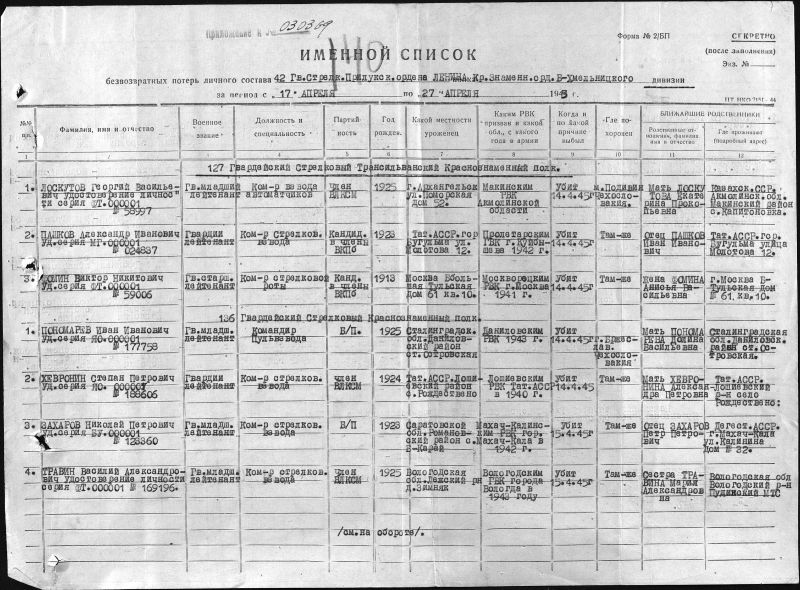 Приложение к №
030369
Форма № 2/БП
СЕКРЕТНО
(после заполнения)
Экз. №
ИМЕННОЙ СПИСОК
безвозвратных потерь личного состава 42 Гв.Стрелк.Прилукск.ордена ЛЕНИНА Кр.Знаменн.орд.Б-Хмельницкого дивизии
за период с 17 АПРЕЛЯ по 27 АПРЕЛЯ 1945 г.
№№ пп.
Фамилия, имя и отчество
Военное звание
Должность и специальность
Партийность
Год рожден.
Какой местности уроженец
Каким РВК призван и какой обл., с какого года в армии
Когда и по какой причине выбыл
Где похоронен
БЛИЖАЙШИЕ РОДСТВЕННИКИ
Родственные отношения, фамилия, имя и отчество
Где проживают (подробный адрес)
1 2 3 4 5 6 7 8 9 10 11 12
127 Гвардейский Стрелковый Трансильванский Краснознаменный полк.
1. ЛОСКУТОВ Георгий Васильевич удостоверение личности серия ФТ.000001 № 58997
Гв.младший лейтенант
Ком-р взвода автоматчиков
Член ВЛКСМ
1925
г.Архангельск ул.Поморская дом 52.
Макинским РВК Акмолинской области
Убит 14.4.45г
м.Подивин Чехословакия.
Мать ЛОСКУТОВА Екатерина Прокопьевна
Казахск.ССР. Акмолинск.обл. Макинский район с.Капитоновка.
2. ПАШКОВ Александр Иванович уд.серия МГ.000001 № 024837
Гвардии лейтенант
Ком-р стрелков. взвода
Кандид. в члены ВКПб
1923
Тат.АССР.гор Бугульма ул. Молотова 12.
Пролетарским РВК г.Куйбышева 1942 г.
Убит 14.4.45г
Там-же
Отец ПАШКОВ Иван Иванович
Тат.АССР.гор Бугульма улица Молотова 12.
3. ФОМИН Виктор Никитович Уд.серия ФТ.000001 № 59006
Гв.старш. лейтенант
Ком-р стрелковой роты
Канд. в члены ВКПб
1913
Москва Б-Тульская дом 61 кв.10.
Москворецким РВК г.Москва 1941 г.
Убит 14.4.45г
Там-же
Жена ФОМИНА Анисья Васильевна
г.Москва Б-Тульская дом № 61.кв.10.
136 Гвардейский Стрелковый Краснознаменный полк.
1. ПОНОМАРЕВ Иван Иванович Уд.серия ЯО.000001 № 177758
Гв.младш. лейтенант
Командир Пульвзвода
Б/П.
1925
Сталинградск. обл.Даниловский район ст.Островская
Даниловским РВК 1943 г.
Убит 14.4.45г
гг.Бржеслав. Чехословакия
Мать ПОНОМАРЕВА Васильевна
Сталинградская обл.Даниловск. район ст.Островская.
2. ХЕВРОНИН Степан Петрович Уд.серия ЯО. 000001 № 188606
Гвардии лейтенант
Ком-р стрелков. взвода
Член ВЛКСМ
1924
Тат.АССР.Лошиевский район с.Рождествено
Лошиевским РВК Тат.АССР в 1940 г.
Убит 14.4.45
Там-же
Мать ХЕВРОНИНА Александра Петровна
Тат.АССР. Лошиевский р-н село Рождествено:
3. ЗАХАРОВ Николай Петрович Уд.серия БУ.000001 № 123360
Гв.младш. лейтенант
Ком-р стрелков. взвода
Б/П
1923
Саратовской обл.Романовский район с. Б-Карей
Махач-Калинским РВК гор. Махач-Кала в 1942 г.
Убит 15.4.45г
Там-же
Отец ЗАХАРОВ Петр Петрович
Дагест.АССР. г.Махач-Кала ул.Калинина Дом № 22.
4. ТРАВИН Василий Александрович Удостоверение личности серия ФТ.000001 № 169196.
Гв.младш. лейтенант
Ком-р стрелков. взвода
Член ВЛКСМ
1925
Вологодская обл.Лежский рн д.Зимняк
Вологодским РВК города Вологда в 1943 году
Убит 15.4.45г
Там же
Сестра ТРАВИНА Мария Александровна
Вологодская обл Вологодский р-н Пудинский МТС
/см.на обороте/.